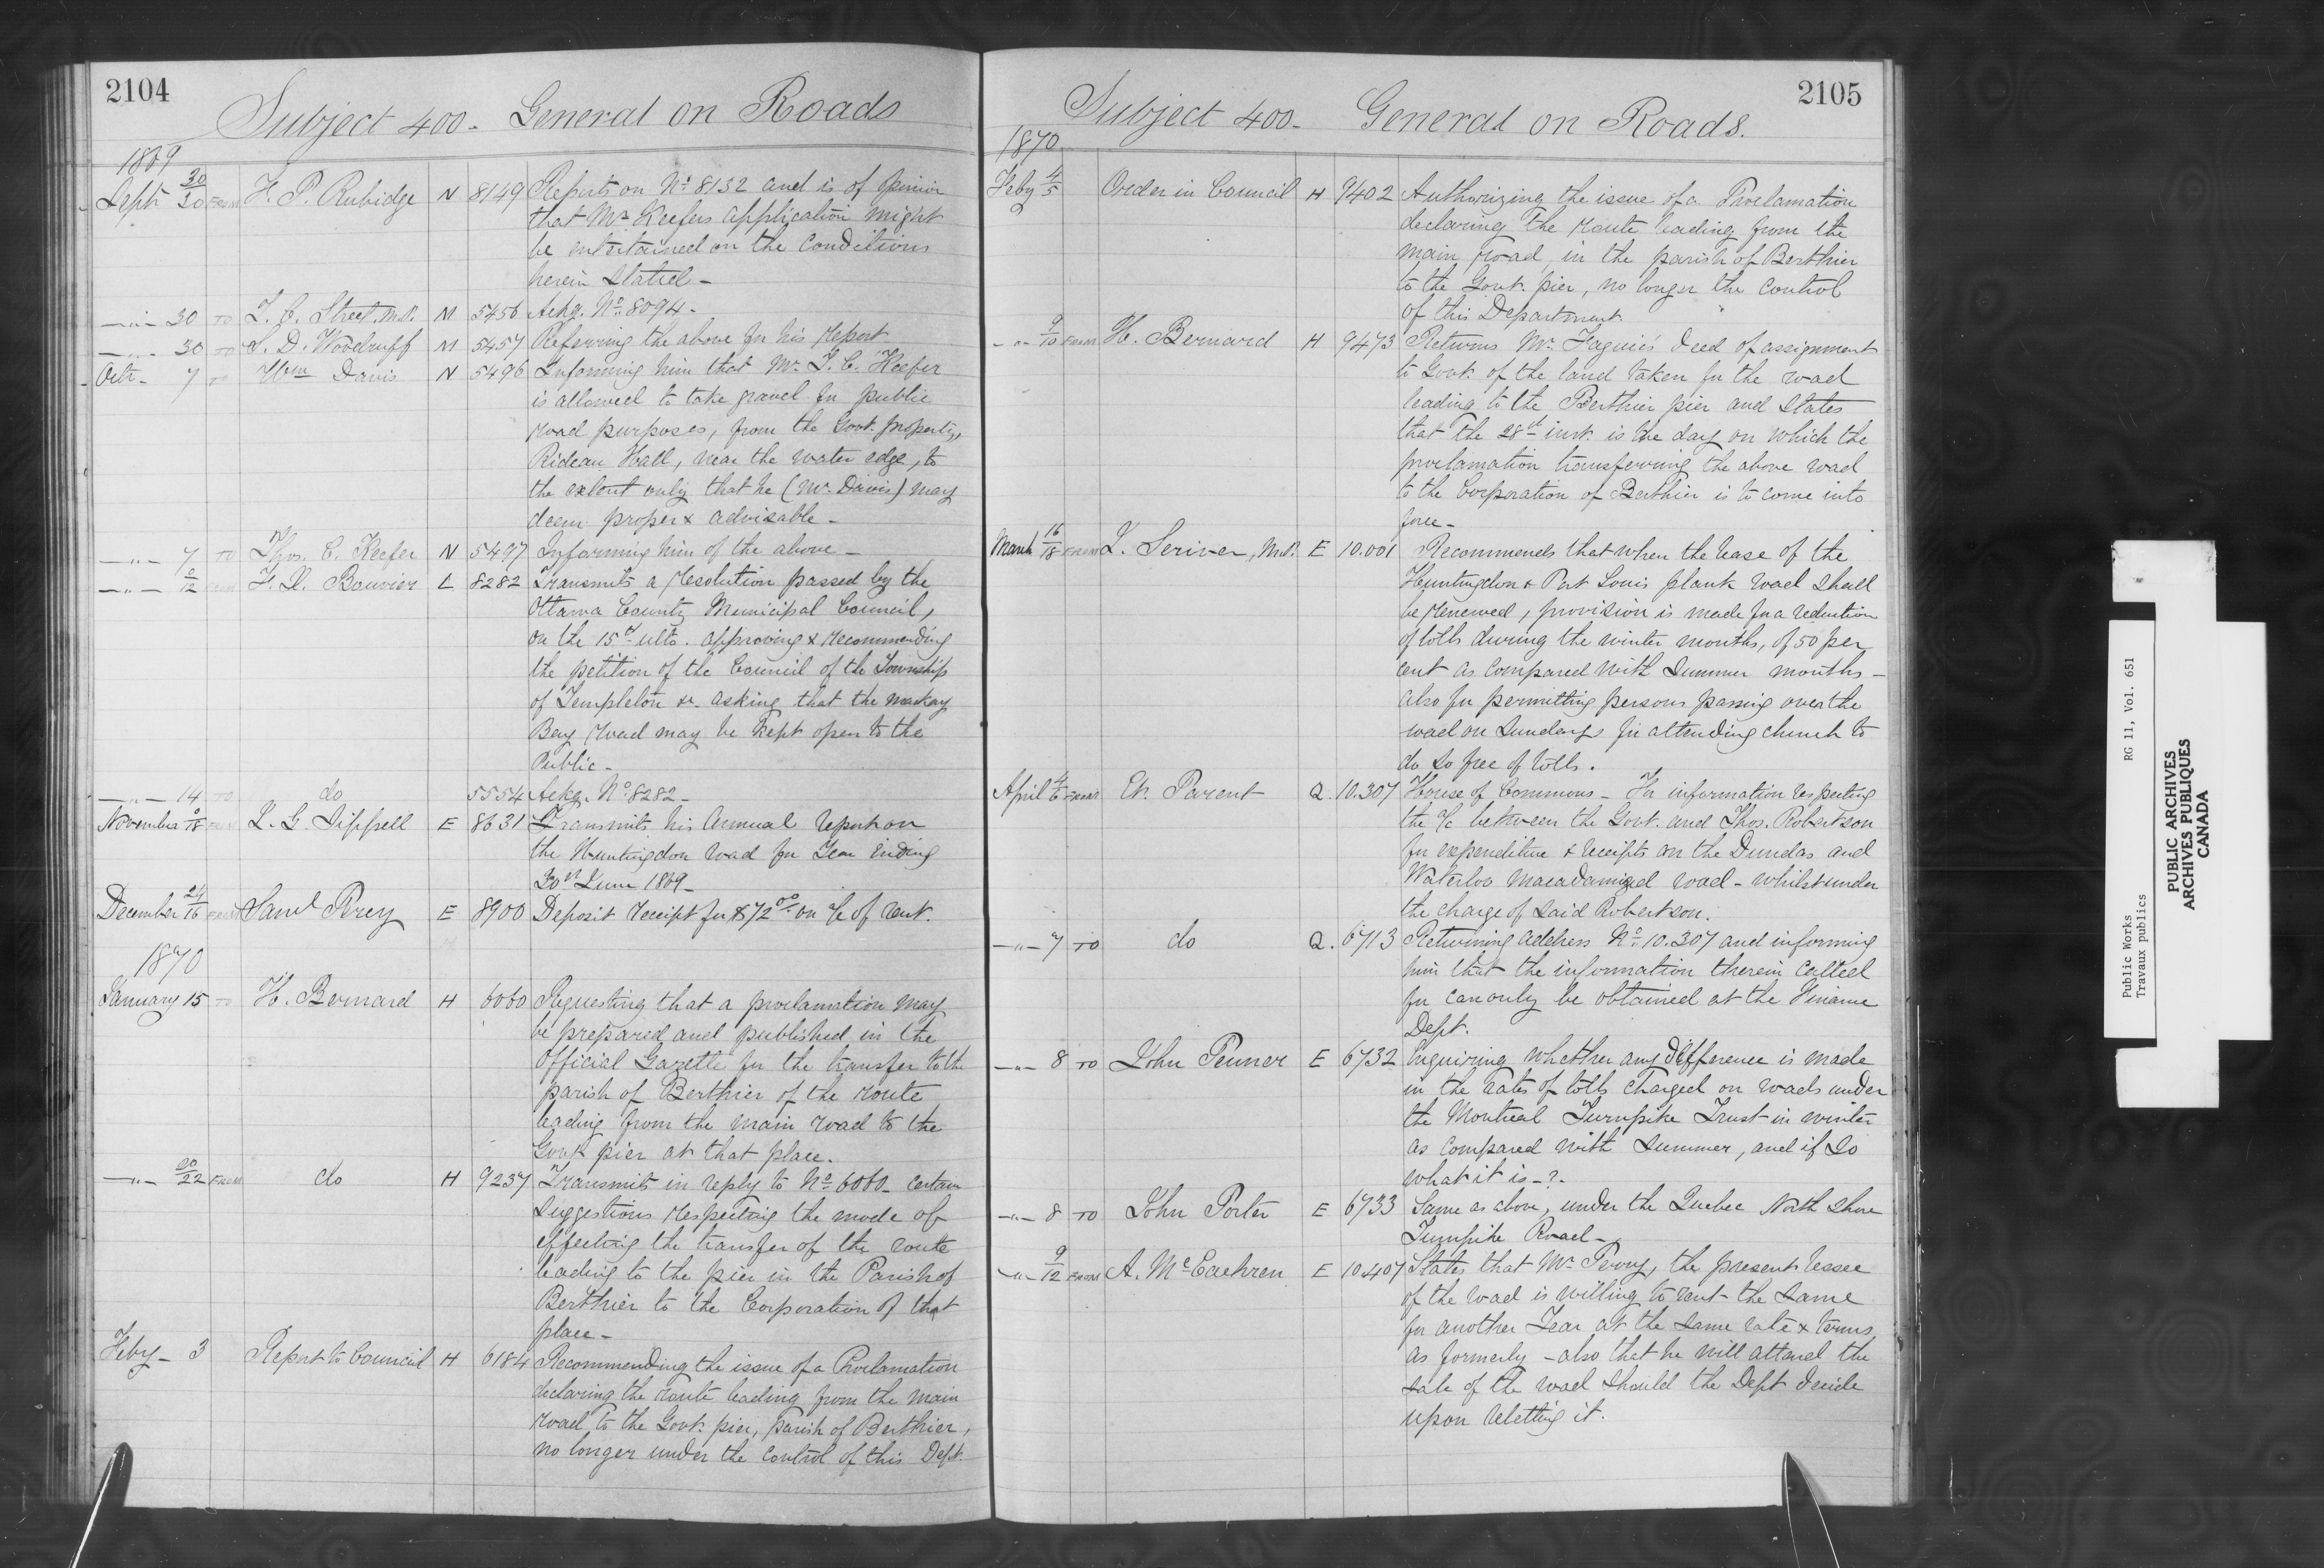 2104
Subject 400 - General on Roads
1869
Septr 30/30 FROM F. P. Rubidge N 8149 Reports on No. 8132 and is of opinion
that Mr Keefers application might
be entertained on the conditions
herein stated -
-"- 30 TO T. C. Street, M.P. M 5456 Ackg. No. 8094 -
-"- 30 TO S. D. Woodruff M 5457 Referring the above for his report
Octr - 7 TO Wm Davis N 5496 Informing him that Mr T. C. Keefer
is allowed to take gravel for public
road purposes, from the Govt. property,
Rideau Hall, near the water edge, to
the extent only that he (Mr Davis) may
deem proper & advisable -
-"- 7 TO Thos. C. Keefer N 5497 Informing him of the above -
-"- 9/12 FROM F. X. Bouvier L 8282 Transmits a resolution passed by the
Ottawa County Municipal Council,
on the 15th ulto. approving & recommending
the petition of the Council of the Township
of Templeton &c. asking that the Mackay
Bay road may be kept open to the
Public -
-"- 14 TO do 5554 Ackg. No. 8282 -
November /18 FROM L. G. Sippell E 8631 Transmits his Annual report on
the Huntingdon road for Year Ending
30th June 1869 -
December 24/16 FROM Saml Percy E 8900 Deposit receipt for $72.00 on a/c of rent.
1870
January 15 TO H. Bernard H 6060 Requesting that a proclamation may
be prepared and published in the
Official Gazette for the transfer to the
parish of Berthier of the route
leading from the main road to the
Govt. pier at that place.
-"- 20/22 FROM do H 9237 Transmits in reply to No. 6060 - certain
suggestions respecting the mode of
effecting the transfer of the route
leading to the pier in the Parish of
Berthier to the Corporation of that
place -
Feby - 3 Report to Council H 6184 Recommending the issue of a Proclamation
declaring the route leading from the main
road to the Govt. pier, parish of Berthier,
no longer under the control of this Dept.
2105
Subject 400 - General on Roads.
1870
Feby 4/5 Order in Council H 9402 Authorizing the issue of a Proclamation
declaring the route leading from the
main road, in the parish of Berthier
to the Govt. pier, no longer the control
of this Department.
-"- 9/10 FROM H. Bernard H 9473 Returns Mr. Faguie's deed of assignment
to Govt. of the land taken for the road
leading to the Berthier pier and states
that the 28th inst. is the day on which the
proclamation transferring the above road
to the Corporation of Berthier is to come into
force -
March 16/18 FROM L. Scriver, M.P. E 10.001 Recommends that when the lease of the
Huntingdon & Port Louis plank road shall
be renewed, provision is made for a reduction
of tolls during the winter months, of 50 per
cent as compared with Summer months -
also for permitting persons passing over the
road on Sundays for attending church to
do so free of tolls.
April 4/6 FROM Et. Parent Q. 10.307 House of Commons - For information respecting
the a/c between the Govt. and Thos. Robertson
for expenditure & receipts on the Dundas and
Waterloo Macadamized road - whilst under
the charge of said Robertson.
-"- 7 TO do Q. 6713 Returning address No. 10.307 and informing
him that the information therein called
for can only be obtained at the Finance
Dept.
-"- 8 TO John Penner E 6732 Enquiring whether any difference is made
in the rates of tolls charged on roads under
the Montreal Turnpike Trust in winter
as compared with Summer, and if so
what it is -?-
-"- 8 TO John Porter E 6733 Same as above, under the Quebec North Shore
Turnpike Road -
-"- 9/12 FROM A. McEachren E 10.407 States that Mr Percy, the present lessee
of the road is willing to rent the same
for another Year at the same rate & terms
as formerly - also that he will attend the
sale of the road should the Dept decide
upon reletting it.
Public Works RG 11, Vol. 651
Travaux publics
PUBLIC ARCHIVES
ARCHIVES PUBLIQUES
CANADA